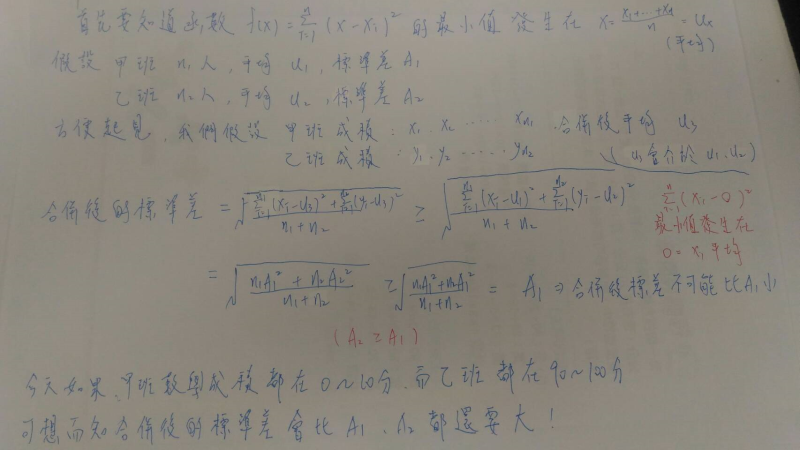 首先要知道函數 f(x) = Σ_{i=1}^{n} (x - x_i)² 的最小值發生在 x = (x₁+…+x_n)/n = u_x
(平均)
假設 甲班 n₁人, 平均 u₁, 標準差 A₁
乙班 n₂人, 平均 u₂, 標準差 A₂
方便起見, 我們假設 甲班成績: x₁, x₂ …… x_{n₁} 合併後平均 u₃
乙班成績: y₁, y₂ …… y_{n₂} (u₃會介於 u₁, u₂)
合併後的標準差 = √((Σ_{i=1}^{n₁}(x_i-u₃)² + Σ_{i=1}^{n₂}(y_i-u₃)²)/(n₁+n₂)) ≥ √((Σ_{i=1}^{n₁}(x_i-u₁)² + Σ_{i=1}^{n₂}(y_i-u₂)²)/(n₁+n₂))
Σ_{i=1}^{n}(x_i-0)²
最小值發生在
0 = x_i 平均
= √((n₁A₁² + n₂A₂²)/(n₁+n₂)) ≥ √((n₁A₁²+n₂A₁²)/(n₁+n₂)) = A₁ ⇒ 合併後標差不可能比A₁小
(A₂ ≥ A₁)
今天如果, 甲班數學成績都在 0~20分, 而乙班都在 90~100分
可想而知合併後的標準差會比 A₁、A₂ 都還要大!